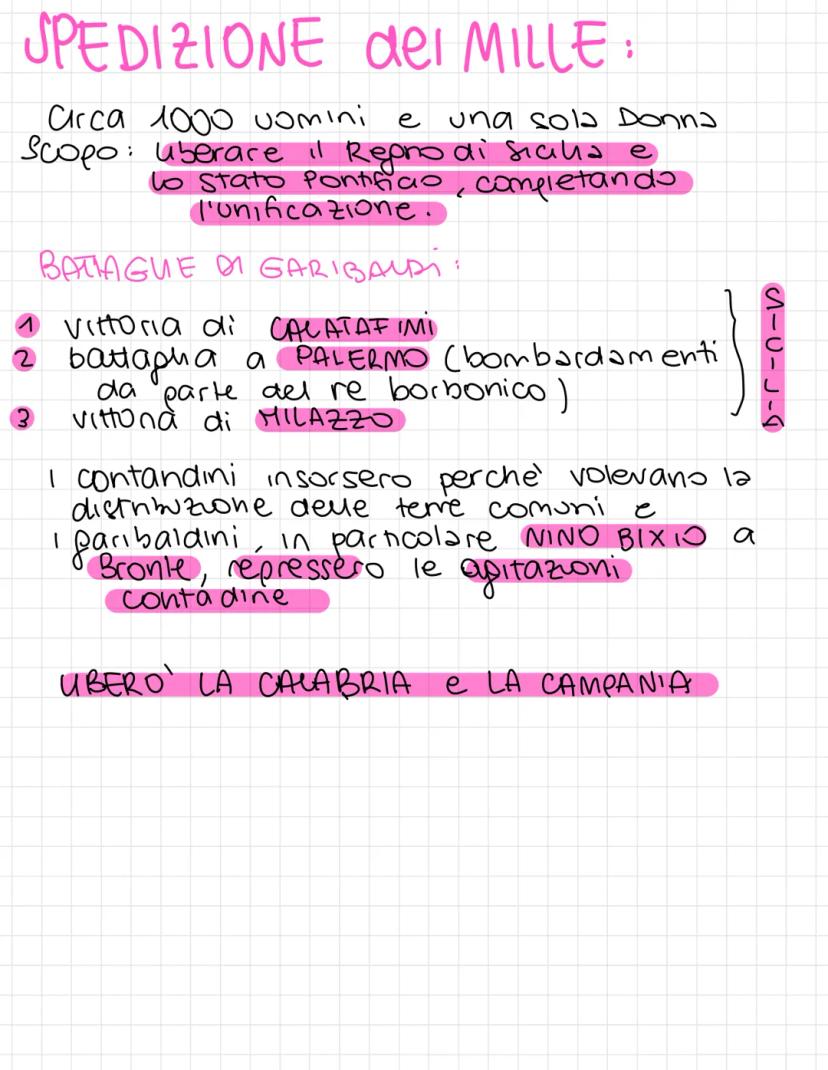 SPEDIZIONE dei MILLE:
Circa 1000 uomini e una sola Donna
Scopo: liberare il Regno di Sicilia e
lo Stato Pontificio, completando
l'unificazione.
BATTAGLIE DI GARIBALDI:
1 vittoria di CALATAFIMI
2 battaglia a PALERMO (bombardamenti
da parte del re borbonico)
3 vittoria di MILAZZO
SICILIA
I contandini insorsero perchè volevano la
distribuzione delle terre comuni e
i garibaldini, in particolare NINO BIXIO a
Bronte, repressero le agitazioni
contadine
LIBERÒ LA CALABRIA e LA CAMPANIA